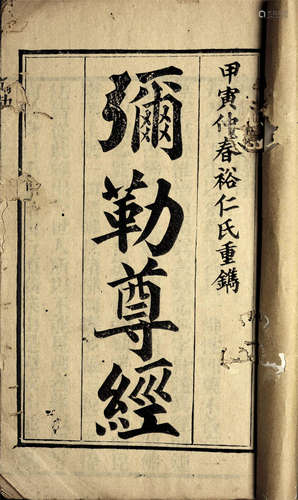 甲寅仲春裕仁氏重鐫
彌勒尊經